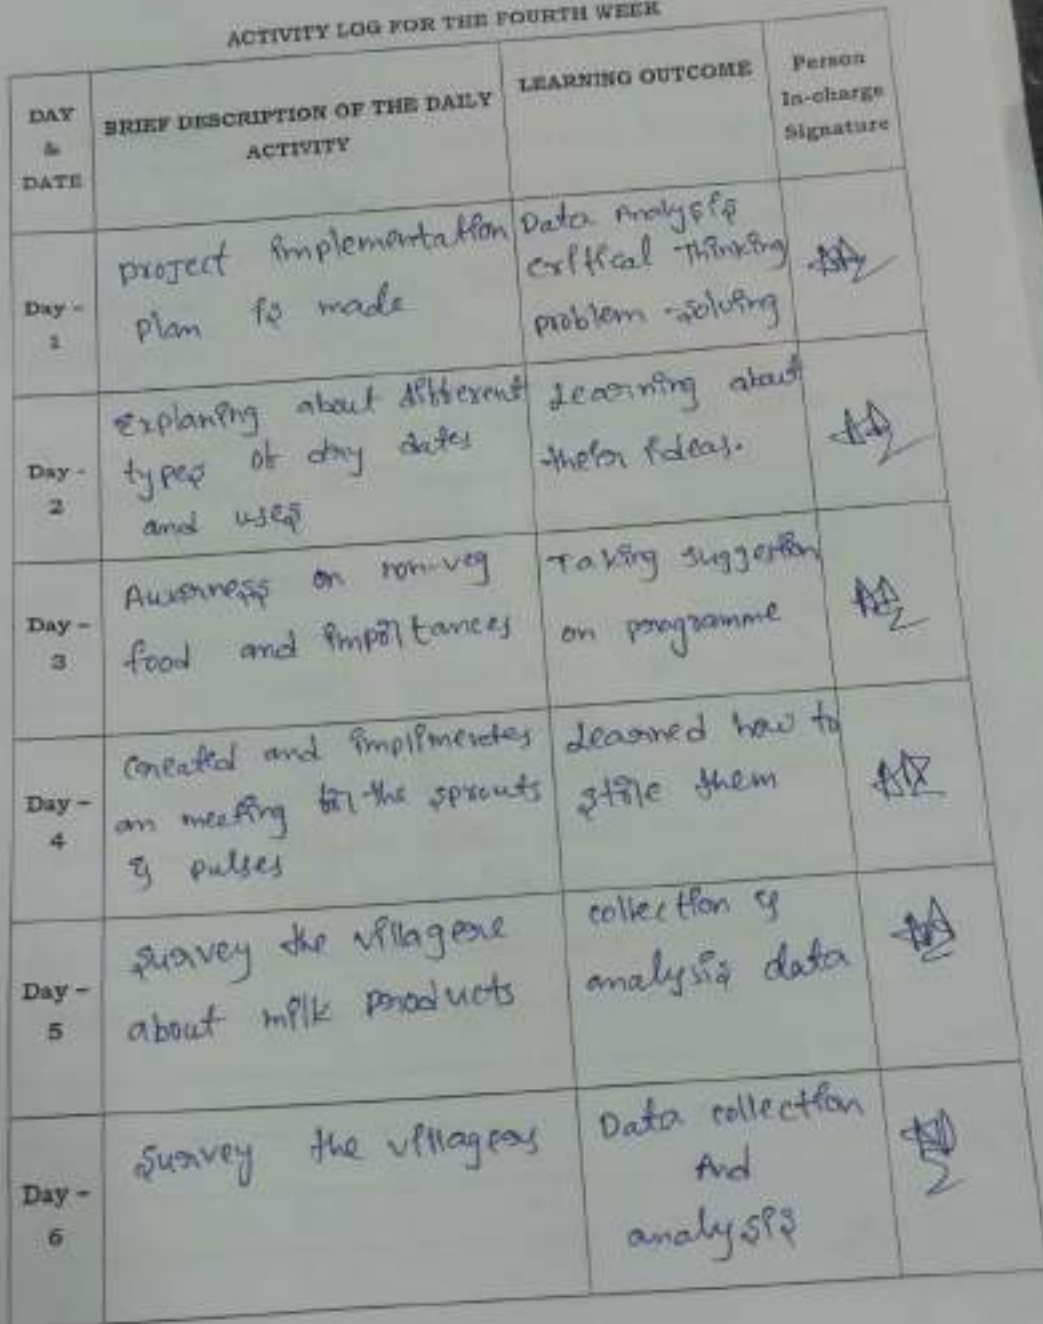 ACTIVITY LOG FOR THE FOURTH WEEK
DAY
&
DATE
BRIEF DESCRIPTION OF THE DAILY
ACTIVITY
LEARNING OUTCOME
Person
In-charge
Signature
Day -
1
project implementation
plan is made
Data Analysis
critical Thinking
problem - solving
Day -
2
Explaning about different
types of dry dates
and uses
Learning about
their ideas.
Day -
3
Awarness on non-veg
food and importances
Taking suggestion
on programme
Day -
4
created and implimentes
an meeting for the sprouts
& pulses
Learned how to
them
Day -
5
survey the
about milk products
collection &
analysis data
Day -
6
survey the villagers
Data collection
And
analysis